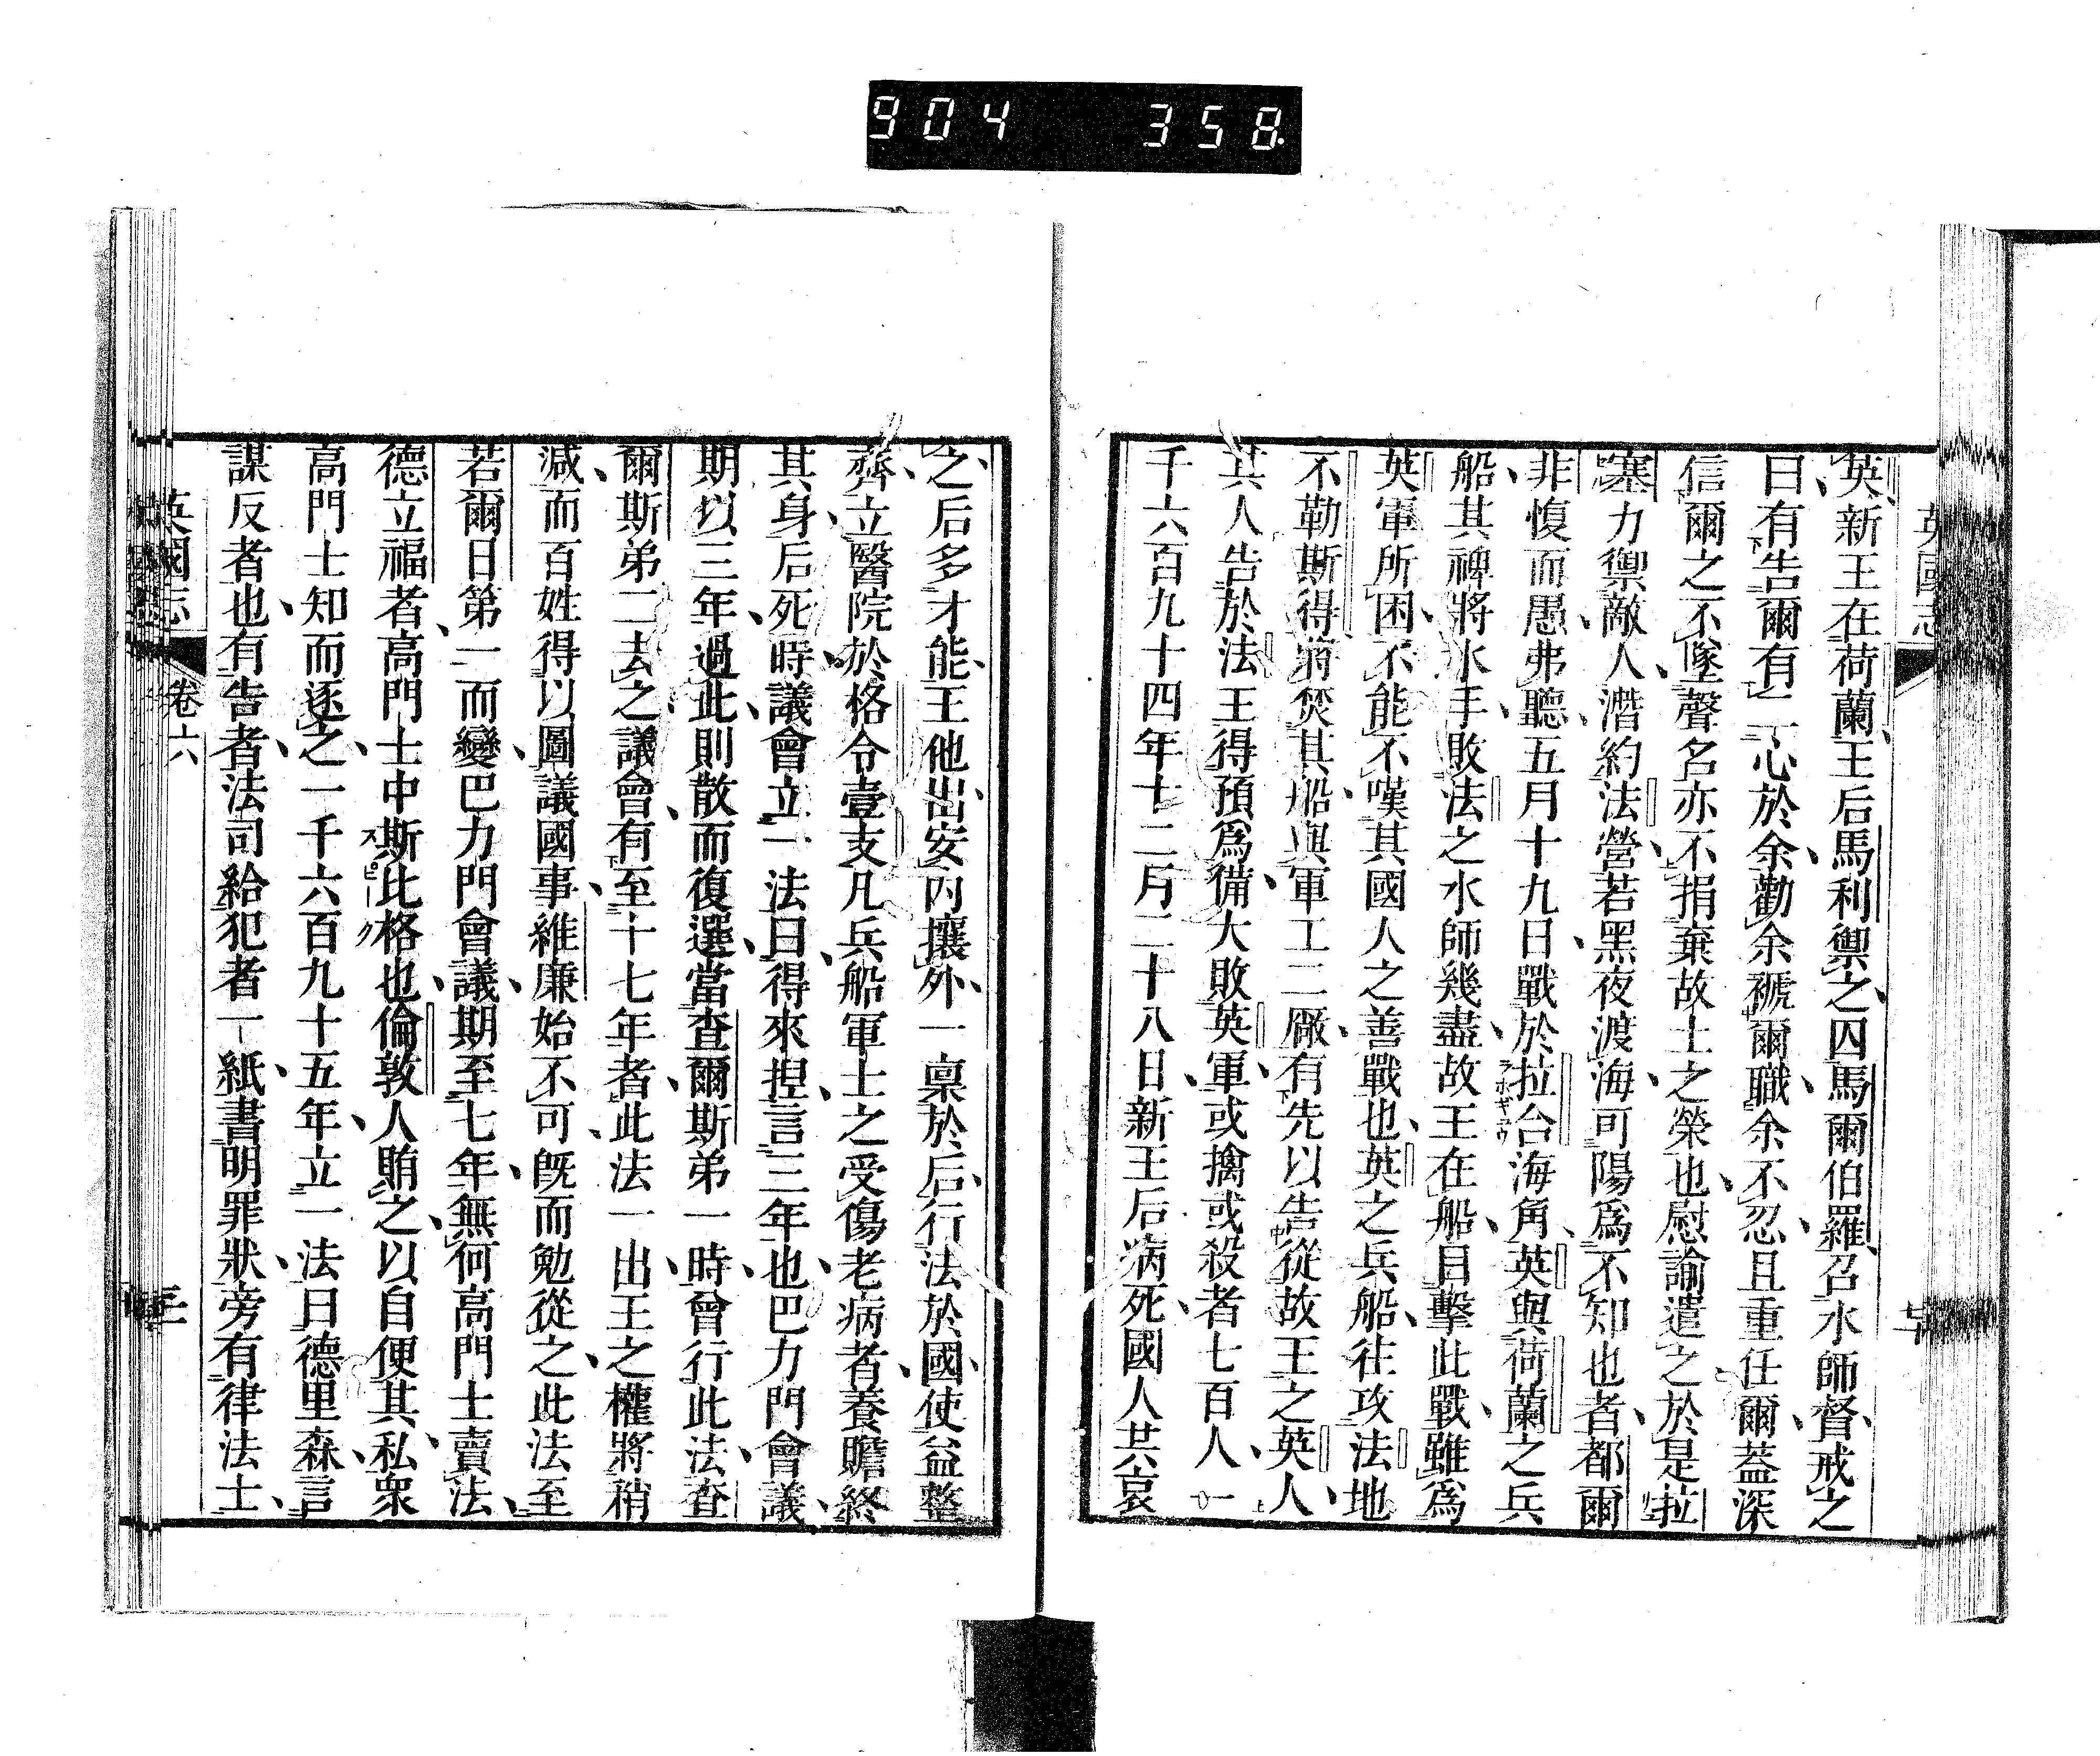 904 358
英國志
英新王在荷蘭王后馬利禦之囚馬爾伯羅召水師督戒之
曰有告爾有二心於余勸余褫爾職余不忍且重任爾葢深
信爾之不墜聲名亦不捐棄故士之榮也慰諭遣之於是拉
塞力禦敵人濳約法營若黑夜渡海可陽爲不知也者都爾
非愎而愚弗聽五月十九日戰於拉台海角英與荷蘭之兵
ラホギウ
船其裨將水手敗法之水師幾盡故王在船目擊此戰雖爲
英軍所困不能不嘆其國人之善戰也英之兵船徃攻法地
不勒斯得將焚其船與軍工二廠有先以告從故王之英人
其人告於法王得預爲備大敗英軍或擒或殺者七百人一
千六百九十四年十二月二十八日新王后病死國人共哀
之后多才能王他出安內攘外一禀於后行法於國使益整
齊立醫院於格令壹支凡兵船軍士之受傷老病者養贍終
其身后死時議會立一法曰得來捏言三年也巴力門會議
期以三年過此則散而復選當查爾斯弟一時曾行此法查
爾斯弟二去之議會有至十七年者此法一出王之權將稍
減而百姓得以圖議國事維廉始不可旣而勉從之此法至
若爾日第一而變巴力門會議期至七年無何高門士賣法
德立福者高門士中斯比格也倫敦人賄之以自便其私衆
スピーク
高門士知而逐之一千六百九十五年立一法曰德里森言
謀反者也有告者法司給犯者一紙書明罪狀旁有律法士
英國志
卷六